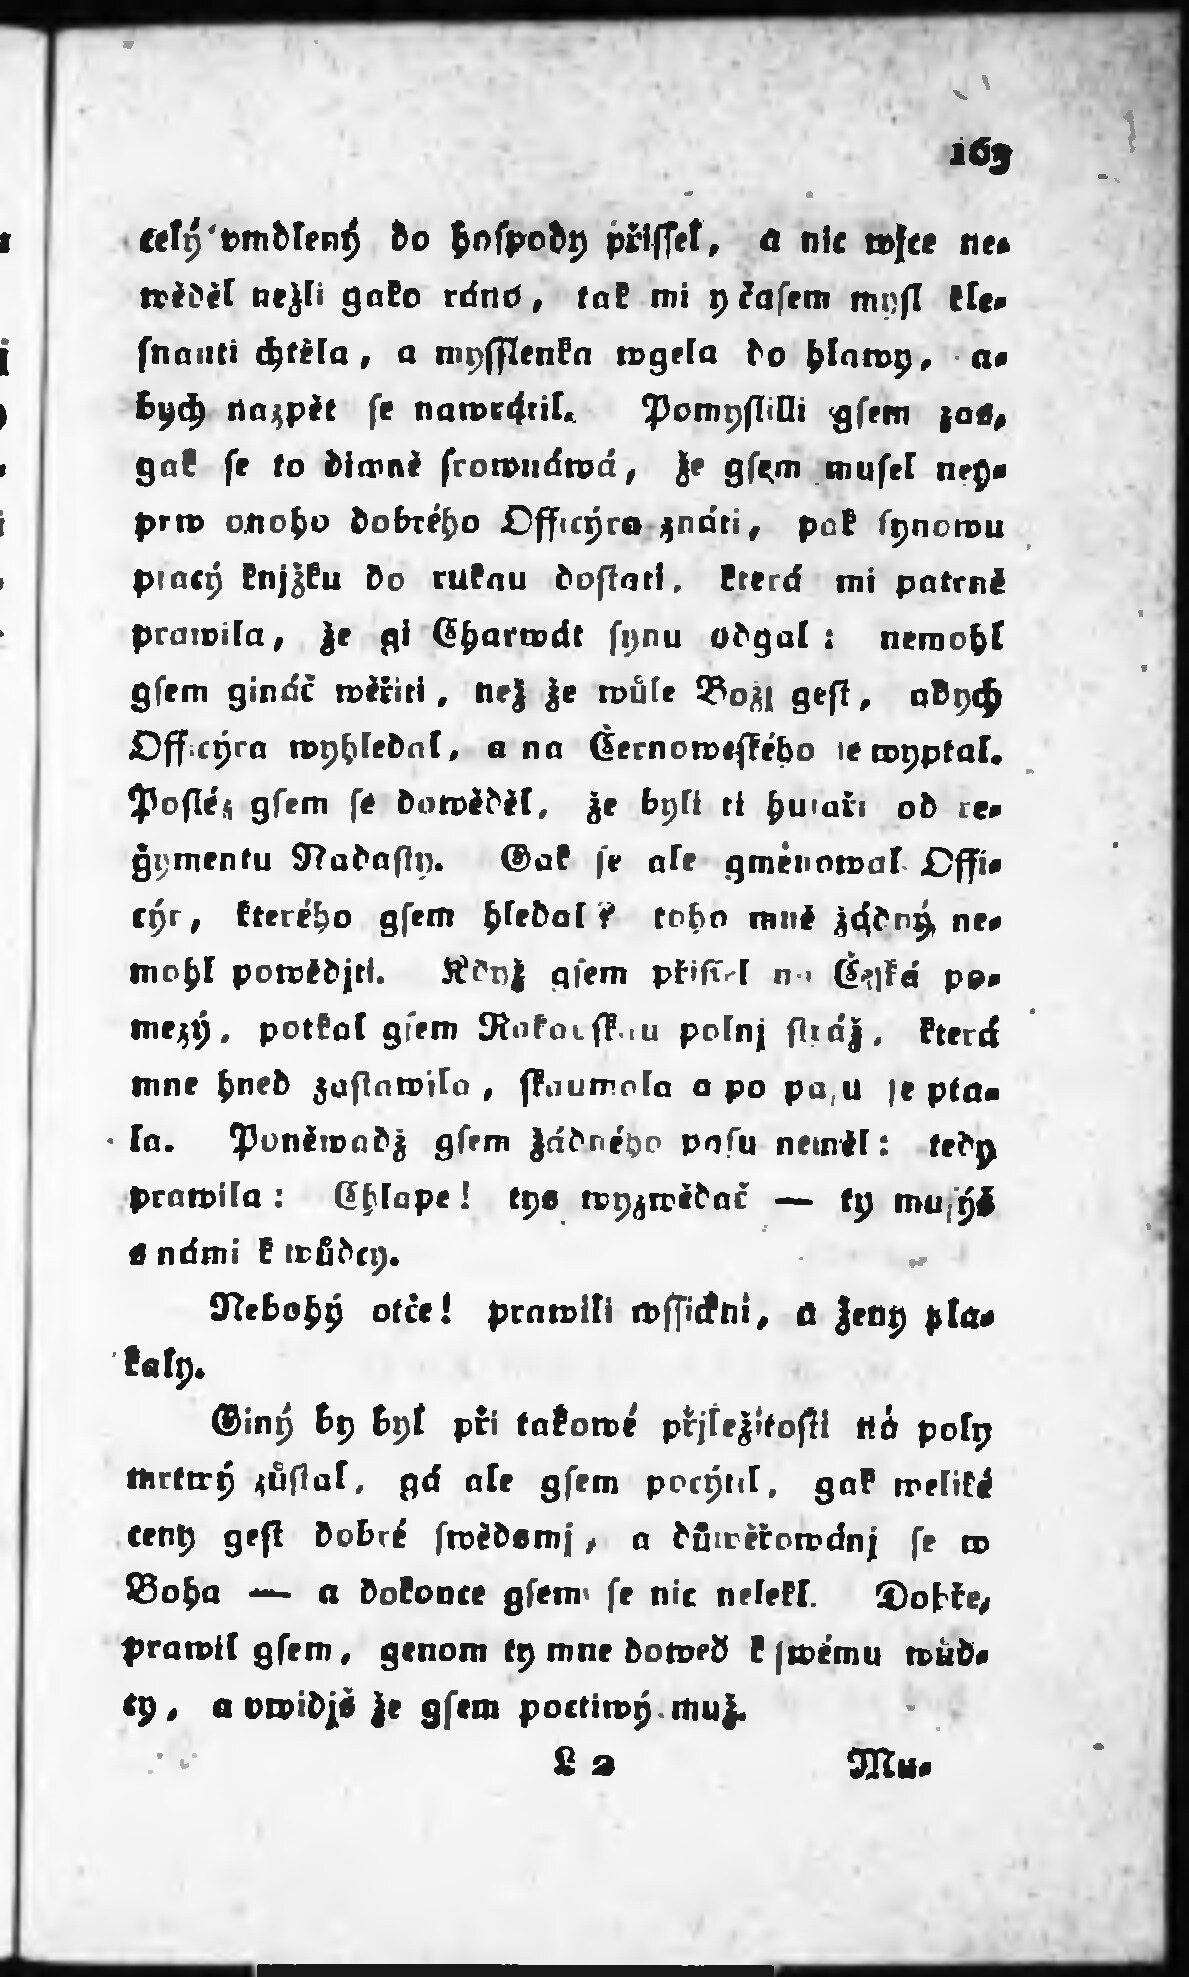 163
celý vmdlený do hospody přissel, a nic wjce ne-
wěděl nežli gako ráno, tak mi y časem mysl kle-
snauti chtěla, a mysslenka wgela do hlawy, a-
bych nazpět se nawrátil. Pomyslilli gsem zas,
gak se to diwně srownáwá, že gsem musel ney-
prw onoho dobrého Officýra znáti, pak synowu
psacý knjžku do rukau dostati, která mi patrně
prawila, že gi Charwát synu odgal: nemohl
gsem gináč wěřiti, než že wůle Božj gest, abych
Officýra wyhledal, a na Černoweského se wyptal.
Posléz gsem se dowěděl, že byli ti husaři od re-
gymentu Nadasty. Gak se ale gmenowal Offi-
cýr, kterého gsem hledal? toho mně žádný ne-
mohl powědjti. Když gsem přissel na Česká po-
mezý, potkal gsem Rakauskau polnj stráž, která
mne hned zastawila, skaumala a po pasu se pta-
la. Poněwadž gsem žádného pasu neměl: tedy
prawila: Chlape! tys wyzwědač — ty musýš
s námi k wůdcy.
Nebohý otče! prawili wssickni, a ženy pla-
kaly.
Giný by byl při takowé přjležitosti na poly
mrtwý zůstal, gá ale gsem pocýtil, gak weliké
ceny gest dobré swědomj, a důwěřowánj se w
Boha — a dokonce gsem se nic nelekl. Dobře,
prawil gsem, genom ty mne doweď k swému wůd-
cy, a vwidjš že gsem poctiwý muž.
L 2 Mu-